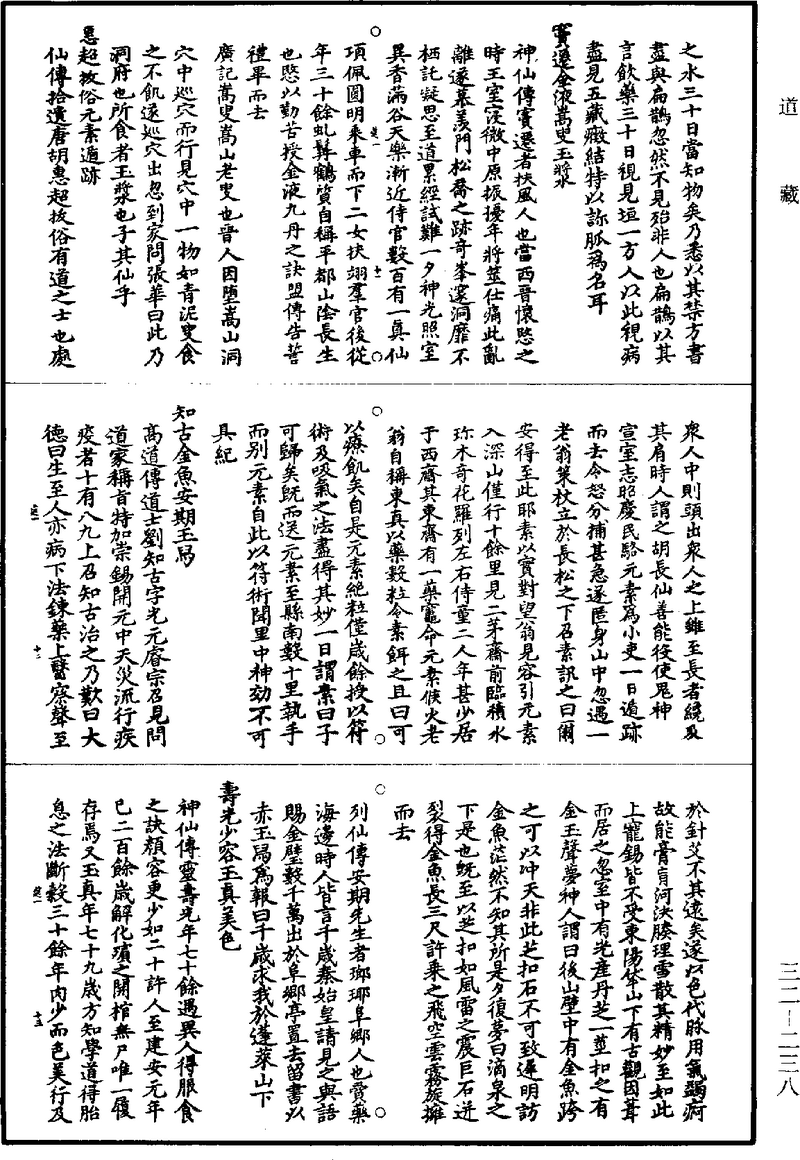 道藏
之水三十日當知物矣乃悉以其禁方書
盡與扁鵲忽然不見殆非人也扁鵲以其
言飲藥三十日視見垣一方人以此視病
盡見五藏癥結特以診脉爲名耳
竇還金液嵩叟玉漿
神仙傳竇還者扶風人也當西晉懷愍之
時王室寖微中原振擾年將筮仕痛此亂
離遂慕羨門松喬之跡奇峯邃洞靡不
栖託凝思至道累經試難一夕神光照室
異香滿谷天樂漸近侍官數百有一眞仙
項佩圓明乘車而下二女扶翊羣官後從
年三十餘虬髯鶴質自稱平都山陰長生
也愍以勤苦授金液九丹之訣盟傳告誓
禮畢而去
廣記嵩叟嵩山老叟也晉人因堕嵩山洞
穴中巡穴而行見穴中一物如青泥叟食
之不飢遂巡穴出忽到家問張華曰此乃
洞府也所食者玉漿也子其仙乎
惠超拔俗元素遁跡
仙傳拾遺唐胡惠超拔俗有道之士也處
衆人中則頭出衆人之上雖至長者纔及
其肩時人謂之胡長仙善能役使鬼神
宣室志昭慶民駱元素爲小吏一日遁跡
而去令怒分捕甚急遂匿身山中忽遇一
老翁策杖立於長松之下召素訊之曰爾
安得至此耶素以實對翁見容引元素
入深山僅行十餘里見二茅齋前臨積水
珎木奇花羅列左右侍童二人年甚少居
于西齋其東齋有一藥竈命元素候火老
翁自稱東真以藥數粒令素餌之且曰可
以療飢矣自是元素絶粒僅歲餘授以符
術及吸氣之法盡得其妙一日謂素曰子
可歸矣旣而送元素至縣南數十里執手
而別元素自此以符術聞里中神効不可
具紀
知古金魚安期玉舄
高道傳道士劉知古字光元睿宗召見問
道家稱旨特加崇錫開元中天災流行疾
疫者十有八九上召知古治之乃歎曰大
德曰生至人亦病下法鍊藥上醫察聲至
於針艾不其遠矣遂以色代脉用氣蠲痾
故能膏肓河決腠理雪散其精妙至如此
上寵錫皆不受東陽崋山下有古觀因葺
而居之忽室中有光產丹芝一莖扣之有
金玉聲夢神人謂曰後山壁中有金魚跨
之可以冲天非此芝扣石不可致遲明訪
金魚茫然不知其所是夕復夢曰滴泉之
下是也旣至以芝扣如風雷之震巨石迸
裂得金魚長三尺許乘之飛空雲霧旋擁
而去
列仙傳安期先生者瑯琊阜鄉人也賣藥
海邊時人皆言千歲秦始皇請見之與語
賜金璧數千萬出於阜鄉亭置去留書以
赤玉舄爲報曰千歲求我於蓬萊山下
壽光少容玉真美色
神仙傳靈壽光年七十餘遇異人得服食
之訣顏容更少如二十許人至建安元年
已二百餘歲解化殯之開棺無尸唯一履
存焉又玉真年七十九歲方知學道得胎
息之法斷穀三十餘年肉少而色美行及
三二-二三八